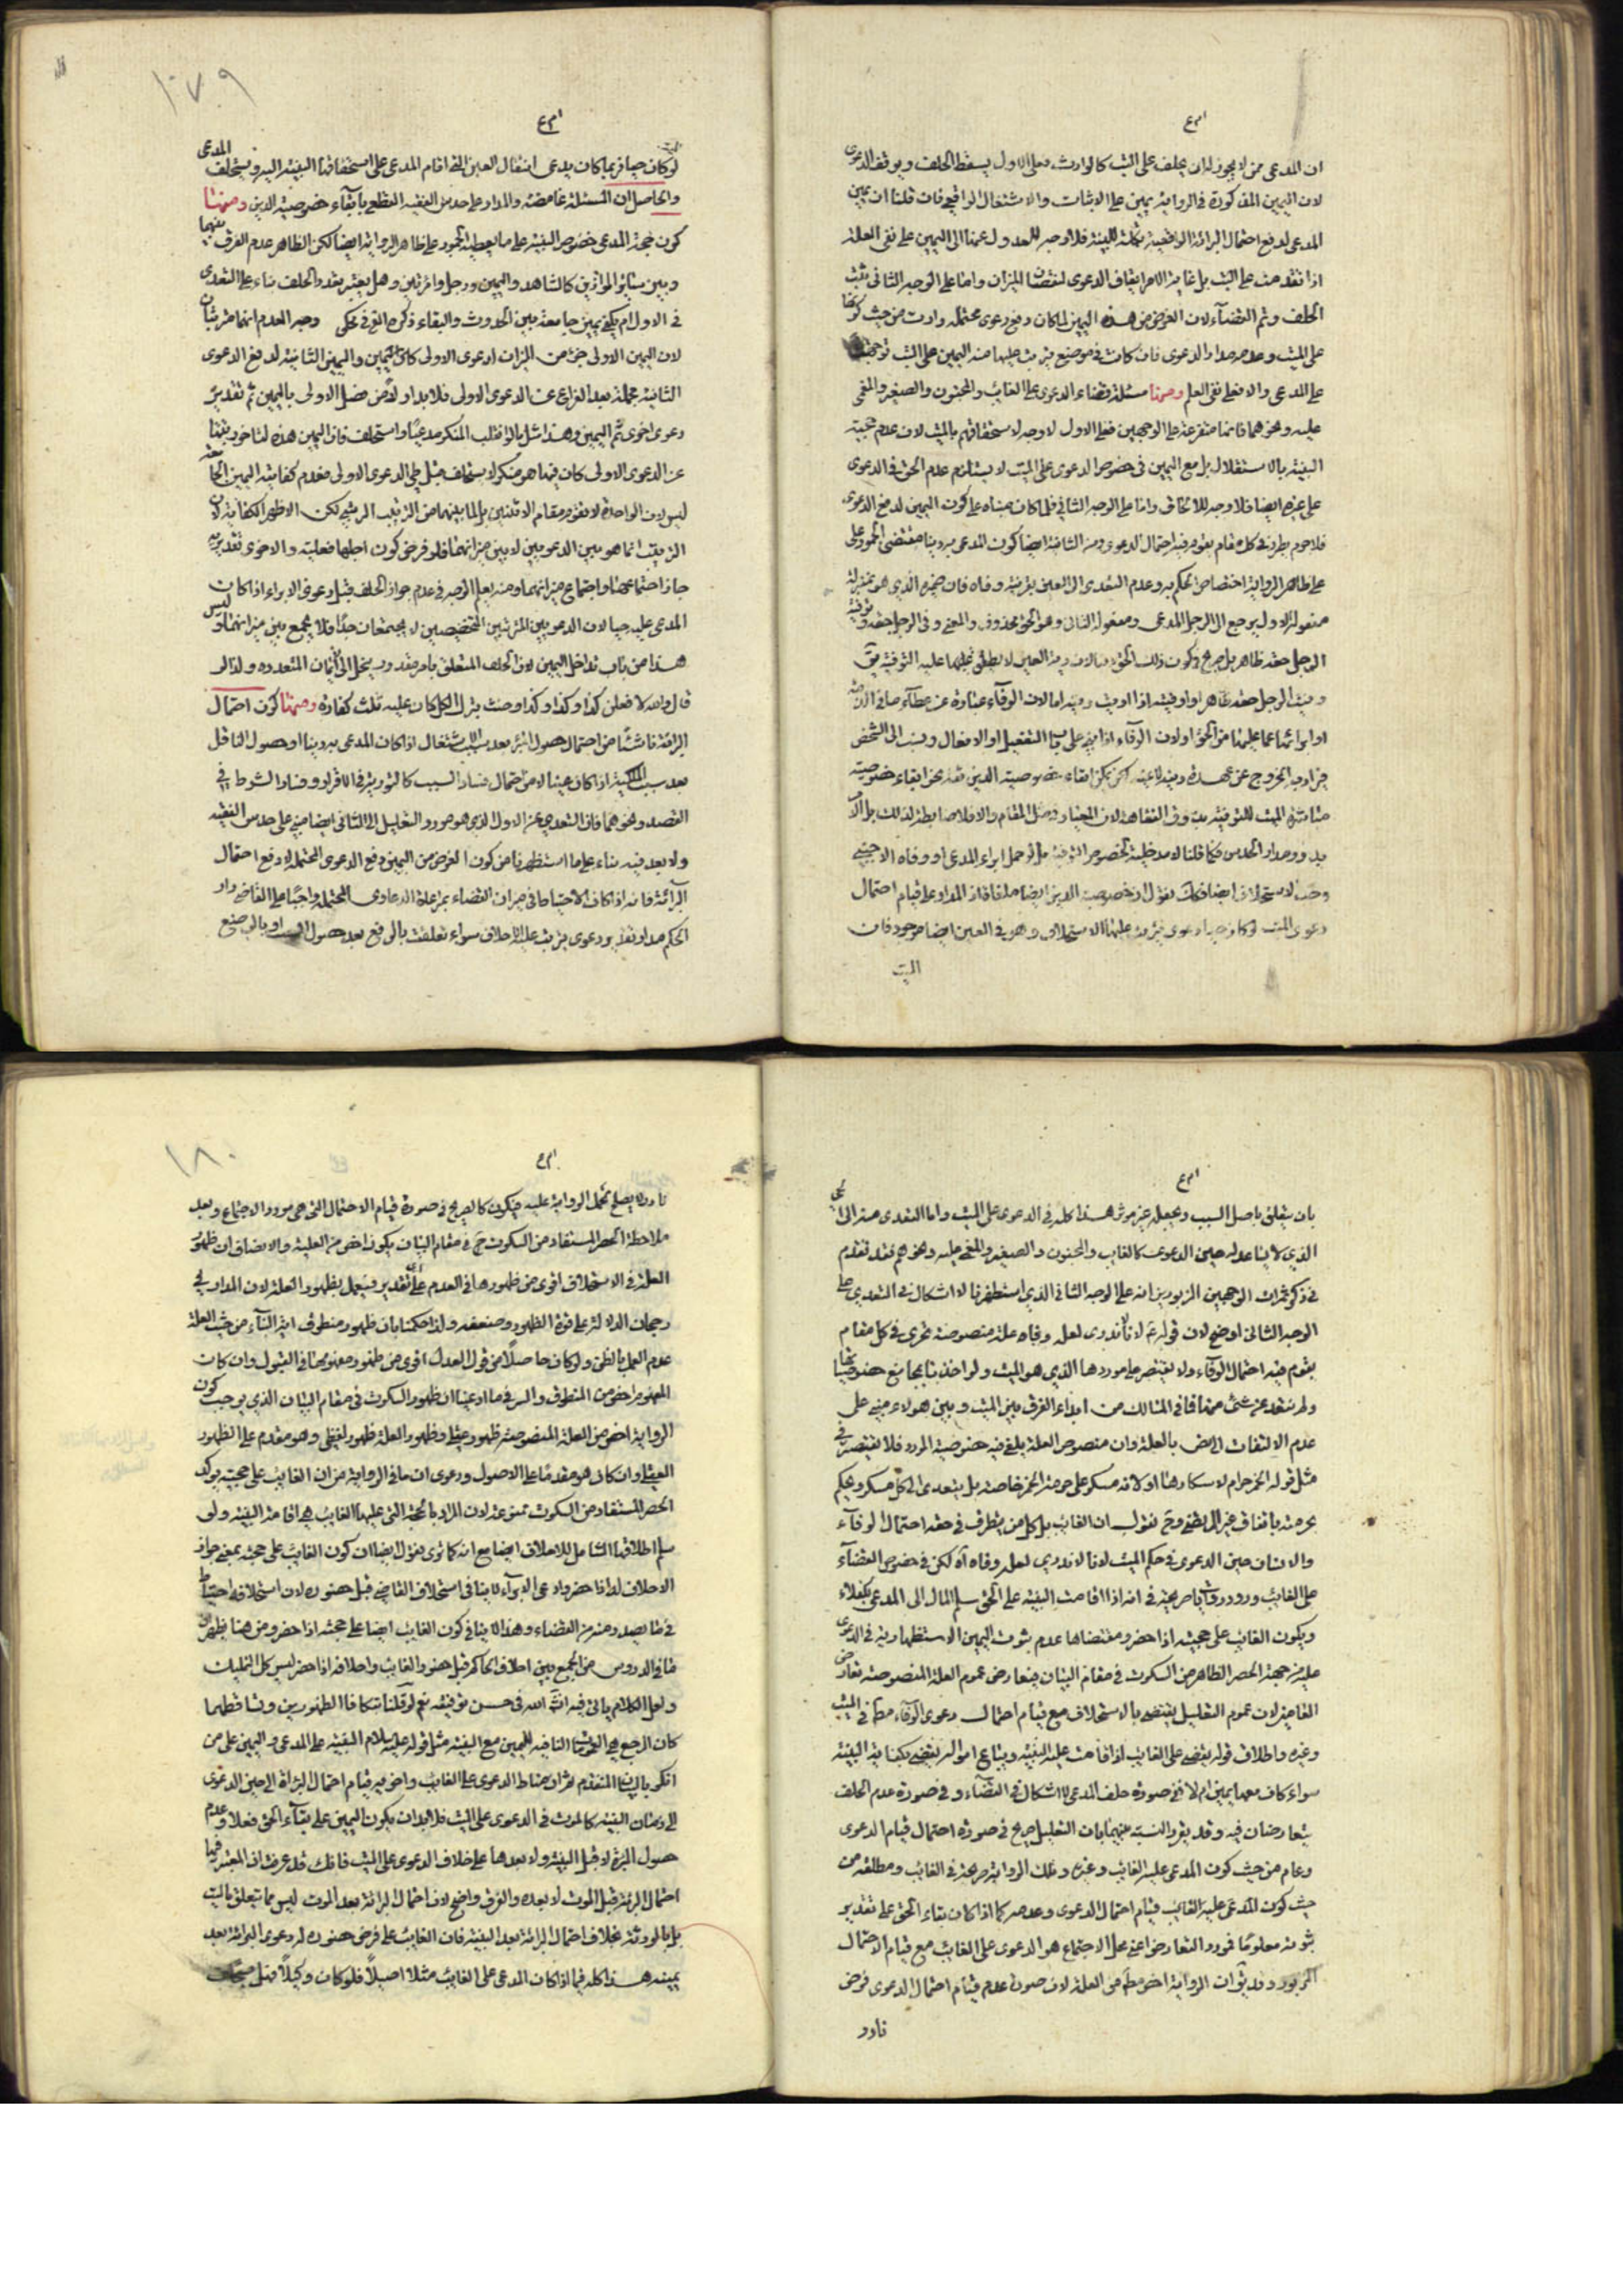 ان المدعى ممن لا يجوز له ان يحلف على البت كالوارث فعلى الاول يسقط الحلف ويوقف الدعوى
لان اليمين المذكورة في الرواية يمين على الاثبات والاشتغال الواقعى فان قلنا ان يمين
المدعى لدفع احتمال البرائة الواقعية تكملة للبينة فلا وجه للعدول عنها الى اليمين على نفى العلم
اذا تعذرت على البت بل غاية الامر ايقاف الدعوى لنقصان الميزان واما على الوجه الثانى ثبت
الحلف وتم القضاء لان الغرض من هذه اليمين لما كان دفع دعوى محتملة وارث من حيث كونها
على الميت وعدمه مدار الدعوى فان كانت في موضع يترتب عليها منه اليمين على البت توجهت
على المدعى والا فعلى نفى العلم ومنها مسئلة قضاء الدعوى على الغائب والمجنون والصغير والمغمى
عليه ونحوهما فانها متفرعة على الوجهين فعلى الاول لا وجه لاستحقاقهم بالميت لان عدم حجية
البينة بالاستقلال بل مع اليمين في خصوص الدعوى على الميت لا يستلزم عدم الحق في الدعوى
على غيره ايضا فلا وجه للالحاق واما على الوجه الثانى فلما كان مبناه على كون اليمين لدفع الدعوى
فلا جرم يطرد في كل مقام يقوم فيه احتمال الدعوى ومن الثانية ايضا كون المدعى به دينا مقتضى الجمود على
على ظاهر الرواية اختصاص الحكم به وعدم التعدى الى العين بقرينة وفاه فان ضميره الذي هو بمنزلة
مفعوله الاول يرجع الى الرجل المدعى ومفعوله الثانى وهو الحق محذوف والمعنى وفى الرجل حقه وتوفية
الرجل حقه ظاهر بل صريح في كون ذلك الحق دينا لان رد العين لا يطلق عليها عليه التوفية يق
وفيت الرجل حقه ظاهرا واوفيته اذا اديت دينه اما لان الوفاء عبارة عن عطاء ما في الذمة
او ابرائها عما عليها من الحق او لان الوفاء اذا بنى على باب التفعيل او الافعال ونسب الى الشخص
يراد به الخروج عن عهدة دينه لا عينه لكن يمكن الغاء خصوصية الدين نحو الغاء خصوصية
مباشرة الميت للتوفية عن وفى الفقاهة لان المعيار
يد ومدار الحدس فكما قلنا لا مدخلية لخصوص التوفية بل لو احتمل ابراء المدعى او وفاه الاجنبى
وجب الاستحلاف ايضا فكك نقول ان خصوصية الدين ايضا ملغاة فان المدار على قيام احتمال
دعوى الميت لو كان حيا دعوى يترتب عليها الاستحلاف وهو في العين ايضا موجود فان
الميت
لو كان حيا فربما كان يدعى انتقال العين اليه اذا قام المدعى على استحقاقها البينة اليه ويستحلف المدعى
والحاصل ان المسئلة غامضة والمدار على حدس الفقيه القطعى بالغاء خصوصية الدين ومنها
كون حجة المدعى خصوص البينة على ما يعطيه الجمود على ظاهر الرواية ايضا لكن الظاهر عدم الفرق بينها
وبين سائر الموازين كالشاهد واليمين ورجل وامرئتين وهل يعتبر تعدد الحلف بناء على التعدى
في الاول ام يكفى يمين جامعة بين الحدوث والبقاء ذكره الفع في محكى وجه العدم انهما مترتبان
لان اليمين الاولى جزء من الميزان لدعوى الاولى كان اليمين واليمين الثانية لدفع الدعوى
الثانية محله بعد الفراغ عن الدعوى الاولى فلا بد اولا من فصل الاولى باليمين ثم تقدير
دعوى اخرى ثم اليمين وهذا مثل ما لو انقلب المنكر مدعيا واستحلف فان اليمين هذه لتاخر رتبتها
عن الدعوى الاولى كان فيها هو منكر لا يستحلف قبل طى الدعوى الاولى فعدم كفاية اليمين الجامعة
ليس لان الواحدة لا تقوم مقام الاثنين بل لما بينهما من الترتيب الرتبى لكن الاظهر الكفاية لان
الترتيب انما هو بين الدعويين لا بين ميزانهما فلو فرض كون احدها فعلية والاخرى تقديرية
جاز اجتماعهما واجتماع ميزانهما ومنه يعلم الوجه في عدم جواز الحلف قبل دعوى الابراء اذا كان
المدعى عليه حيا لان الدعويين المترتبين المختصمين لا يجتمعان جدا فلا يجمع بين ميزانهما وليس
هذا من باب تداخل اليمين لان الحلف المتعلق بامر متعدد ينحل الى ايمان المتعدده ولذا لو
قال والله لا فعلن كذا وكذا وكذا وحنث بترك الكل كان عليه ثلث كفارة ومنها كون احتمال
البرائة ناشئا من احتمال حصول البرء بعد سبب الاشتغال اذا كان المدعى به دينا او حصول الناقل
بعد سبب الملكية اذا كان عينا لا من احتمال فساد السبب كالتورية في الاقرار وفساد الشرط في
القصد ونحوهما فان التعدى عن الاول الذي هو مورد التعليل الى الثانى ايضا مبنى على حدس الفقيه
ولا بعد فيه بناء على ما استظهرنا من كون الغرض من اليمين دفع الدعوى المحتملة لا دفع احتمال
البرائة فانه اذا كان الاحتياط في ميزان القضاء بمراعاة الدعاوى المحتملة واجبا على القاضى دار
الحكم مدار تقدير دعوى يترتب عليها الاحلاف سواء تعلقت بالرافع بعد حصول السبب او بالرافع
بان يتعلق باصل السبب ويجعله غير مؤثر هذا كله في الدعوى على الميت واما التعدى منه الى الحى
الذي لا يساعد له حين الدعوى كالغايب والمجنون والصغير والمغمى عليه ونحوهم فقد تقدم
في ذكر ثمرات الوجهين المزبورين انه على الوجه الثانى الذي استظهرنا لا اشكال في التعدى على
الوجه الثانى اوضح لان قوله ع لانا لا ندرى لعله وفاه علة منصوصة تجرى في كل مقام
يقوم فيه احتمال الوفاء ولا يقتصر على موردها الذي هو الميت ولو اخذنا بمجامع خصوصياتها
ولم نتعد عن شئ منها فما في المسالك من ابداء الفرق بين الميت وبين هولاء مبنى على
عدم الالتفات الى النص بالعلة وان منصوص العلة يلغى فيه خصوصية المورد فلا يقتصر في
مثل قوله الخمر حرام لاسكارها او لانه مسكر على حرمة الخمر خاصة بل يتعدى الى كل مسكر ويحكم
بحرمته باتفاق غير المرتضى وح نقول ان الغايب بل كل من يتطرق في حقه احتمال الوفاء
والاتيان حين الدعوى في حكم الميت لانا لا ندرى لعله وفاه اه لكن في خصوص القضاء
على الغايب ورود رواية صريحة في انه اذا اقامت البينة على الحق سلم المال الى المدعى بكفلاء
ويكون الغايب على حجيته اذا حضر ومقتضاها عدم ثبوت اليمين الاستظهارية في الدعوى
عليه من جهة الحصر الظاهر من السكوت في مقام البيان فيتعارض عموم العلة المنصوصة تعارض
العامين لان عموم التعليل يقتضى بالاستحلاف مع قيام احتمال دعوى الوفاء مط في الميت
وغيره واطلاق قوله يقضى على الغايب اذا قامت عليه البينة ويباع امواله يقتضى بكفاية البينة
سواء كان معها يمين ام لا ففى صورة حلف المدعى لا اشكال في القضاء وفى صورة عدم الحلف
يتعارضان فيه وقد يقرر النسبة بينهما بان التعليل صريح في صورة احتمال قيام الدعوى
وعام من حيث كون المدعى عليه الغايب وغيره وتلك الرواية صريحة في الغايب ومطلقة من
حيث كون المدعى عليه الغايب قيام احتمال الدعوى وعدمه كما اذا كان بقاء الحق على تقدير
ثبوته معلوما فمورد التعارض اعنى محل الاجتماع هو الدعوى على الغايب مع قيام الاحتمال
المزبور وقد يق ان الرواية اخص مط من العلة لان صورة عدم قيام احتمال الدعوى فرض
نادر
نادر لا يصلح بحمل الرواية عليه فيكون كالصريح في صورة قيام الاحتمال التى هى مورد الاجتماع وبعد
ملاحظة الحصر المستفاد من السكوت ح في مقام البيان يكون اخص من العلية والانصاف ان ظهور
العلة في الاستحلاف اقوى من ظهورها في العدم على اى تقدير فيعمل بظهور العلة لان المدار في
رجحان الدلالة على قوة الظهور وضعفه ولذا حكمنا بان ظهور منطوق اية النبأ من حيث العلة
عدم العمل بالظن ولو كان حاصلا من قول العدل اقوى من ظهور مفهومها في القبول وان كان
المفهوم اخص من المنطوق والسر فيما ادعينا ان ظهور السكوت في مقام البيان الذي يوجب كون
الرواية اخص من العلة المنصوصة ظهور عقلى وظهور العلة ظهور لفظى وهو مقدم على الظهور
العقلى وان كان هو مقدما على الاصول ودعوى ان ما في الرواية من ان الغايب على حجته يؤكد
الحصر المستفاد من السكوت ممنوعة لان المراد بالحجة التى عليها الغايب هى اقامة البينة ولو
سلم اطلاقها الشامل للاحلاف ايضا مع انه كما ترى نقول ايضا ان كون الغايب على حجته بمعنى جواز
الاحلاف له اذا حضر وادعى الابراء لا ينافى استحلاف القاضى قبل حضوره لان استحلافه احتياط
في ما يصدر منه من القضاء وهذا لا ينافى كون الغايب ايضا على حجته اذا حضر ومن هنا يظهر ان
ما في الدروس من الجمع بين احلاف الحاكم قبل حضور الغايب واحلافه اذا حضر ليس كل البعيد
ولعل الكلام ياتى فيه انشاء الله في حسن توفيقه نعم لو قلنا بتكافا الظهورين وتساقطهما
كان المرجع هى العمومات النافية لليمين مع البينة مثل قوله عليه السلام البينة على المدعى واليمين على من
انكر بالبيان المتقدم ثم ان مناط الدعوى على الغايب واخويه قيام احتمال البرائة الى حين الدعوى
الى زمان البينة كالموت في الدعوى على الميت فلا بد ان يكون اليمين على بقاء الحق فعلا وعدم
حصول البرئة لا قبل البينة ولا بعدها على خلاف الدعوى على الميت فانك قد عرفت ان المعتبر فيها
احتمال البرئة قبل الموت لا بعده والفرق واضح لان احتمال البرائة بعد الموت ليس مما يتعلق بالميت
بل بالورثة بخلاف احتمال البرائة بعد البينة فان الغايب على فرض حضوره له دعوى البرائة بعد
يمينه هذا كله فيما اذا كان المدعى على الغايب مثلا اصيلا فلو كان وكيلا فهل يستحلف